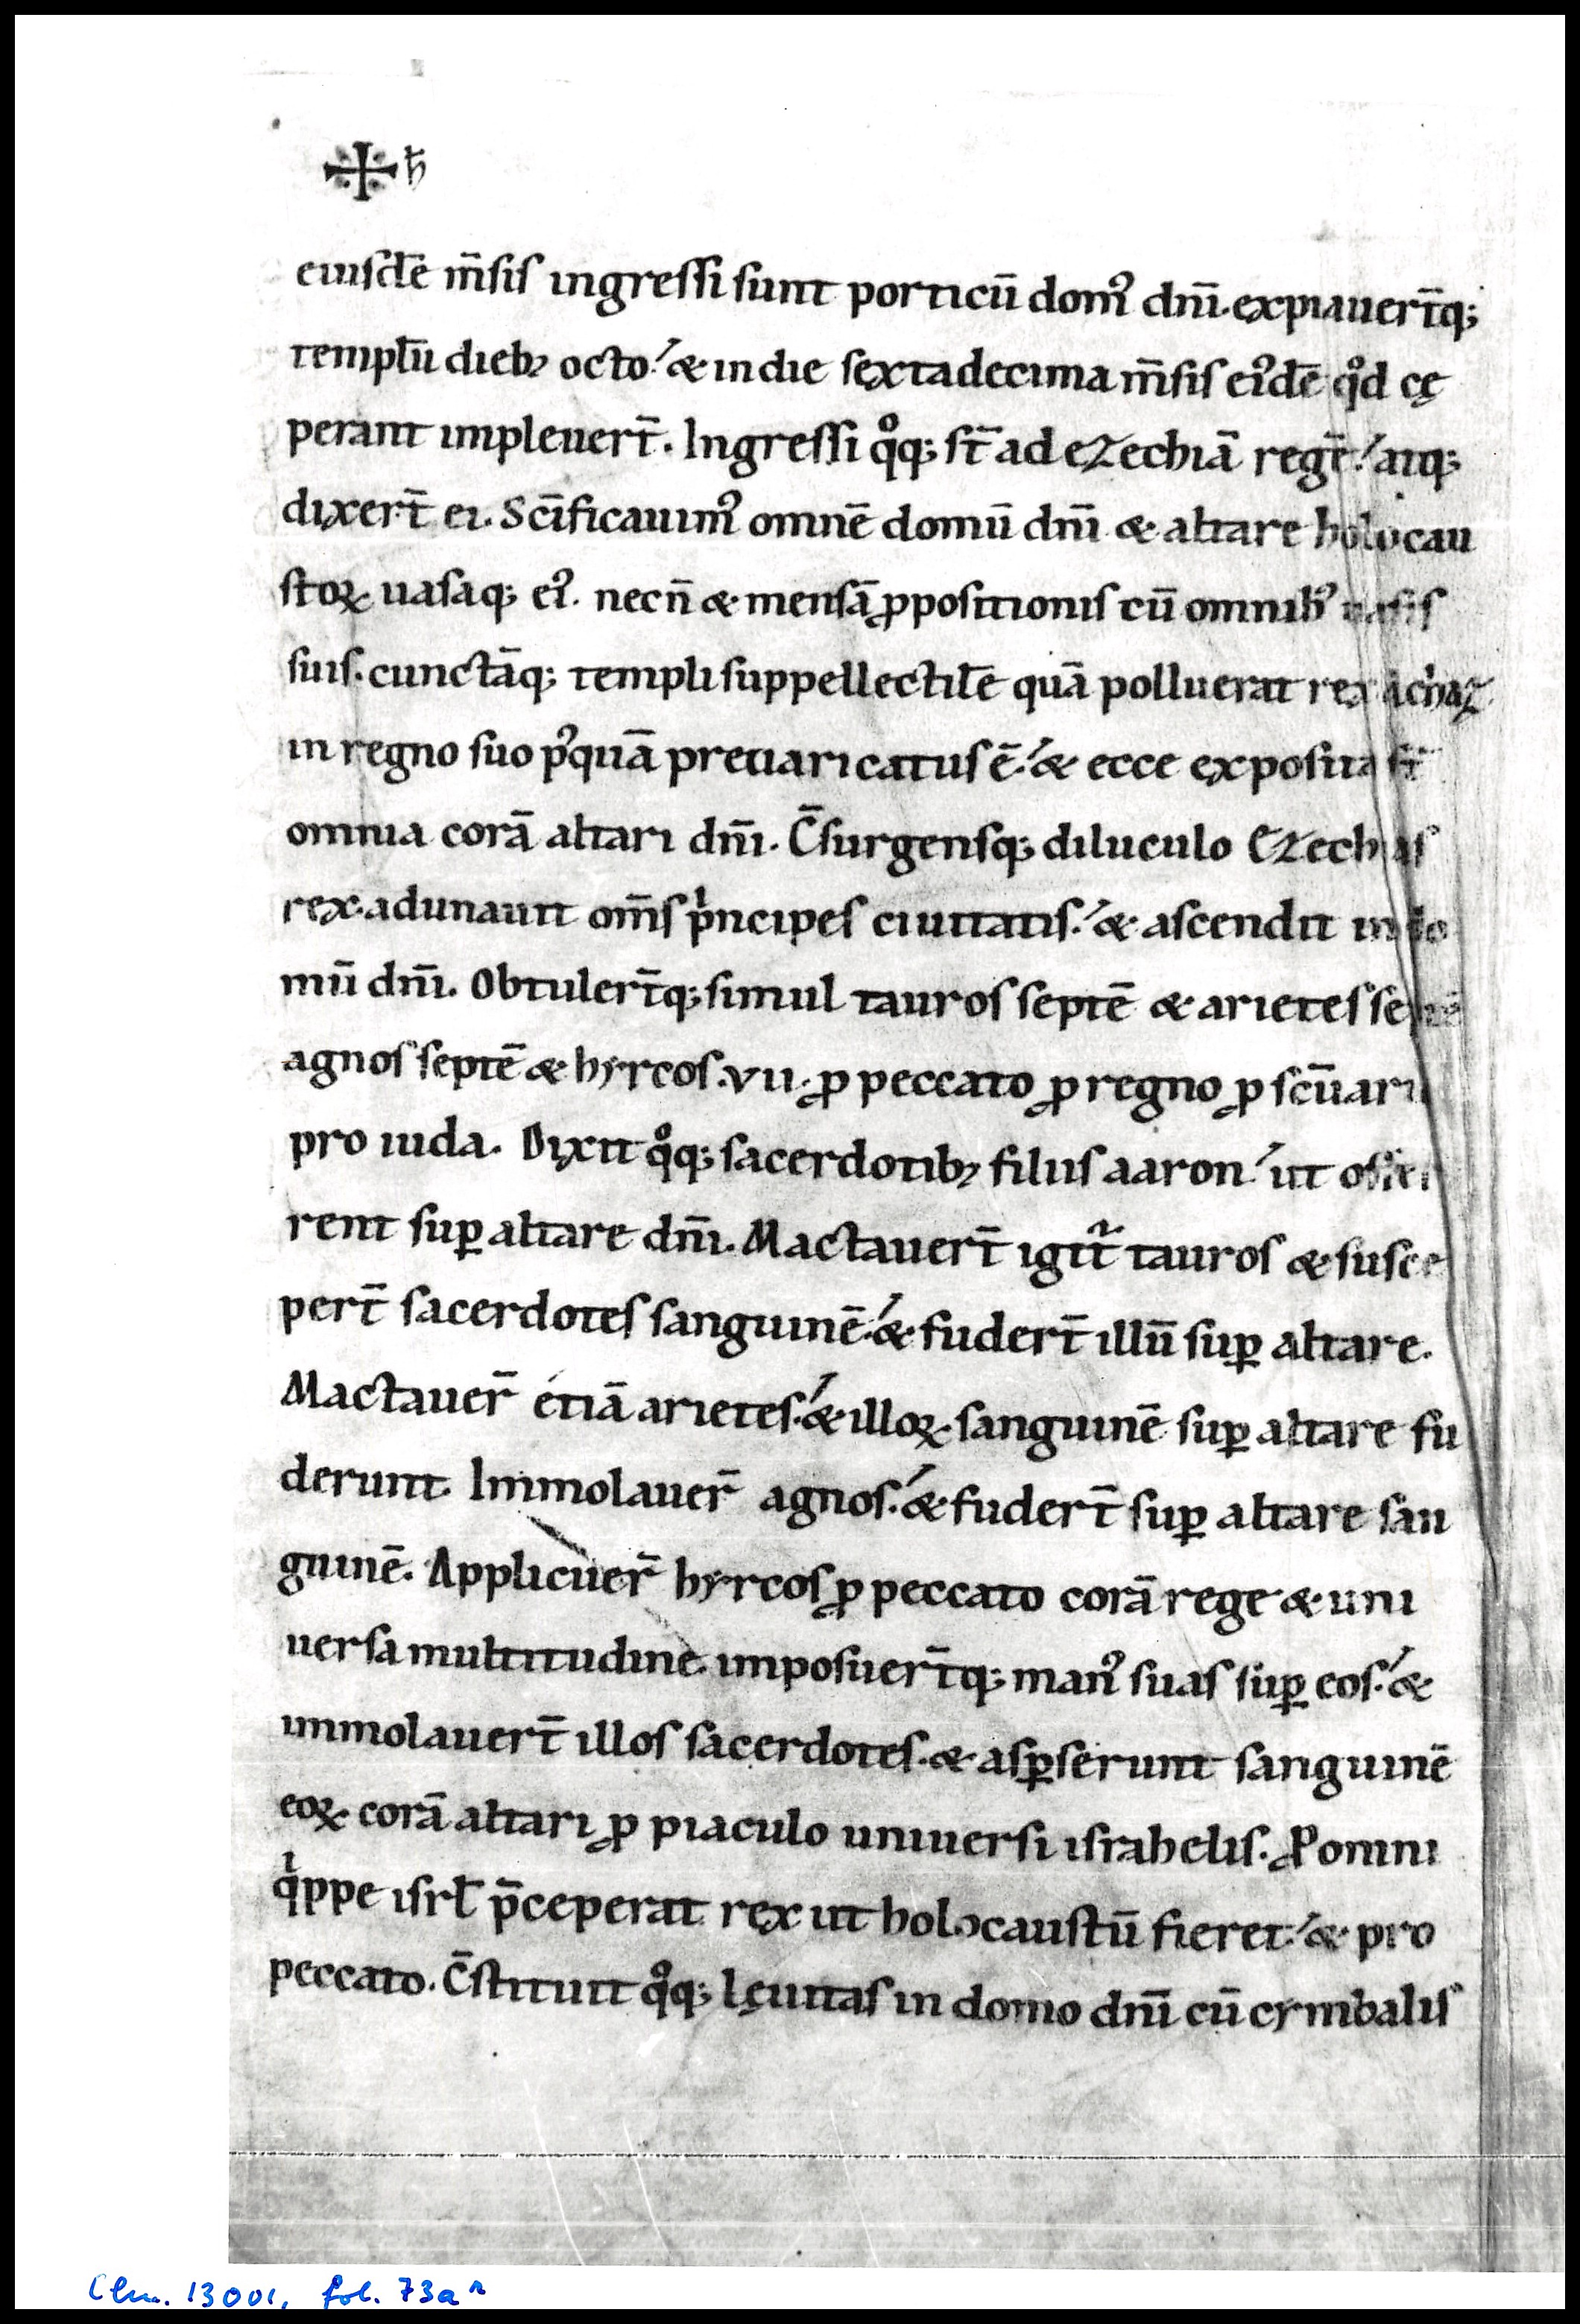 ✠ ħ
eiuſdē m̄ſiſ ingreſſi ſunt porticū domꝰ dn̄i. expiauert̄q;
templū dieb; octo. & in die ſęxtadecima m̄ſiſ eiꝰdē qͦd cę
perant impleuert̄. Ingreſſi qͦq; ſt̄ ad eZechiā regē. atq;
dixert̄ ei. Sc̄ificauimꝰ omnē domū dn̄i & altare holocau
ſtoꝝ uaſaq; eiꝰ. necn̄ & menſā ꝓpoſitioniſ cū omnibꝰ uaſiſ
ſuiſ. cunctāq; templi ſuppellectilē quā polluerat rex achaz
in regno ſuo pꝰquā preuaricatuſ ē. & ecce expoſita ſt̄
omnia corā altari dn̄i. C̄ſurgenſq; diluculo EZechiaſ
rex. adunauit om̄ſ pͥncipeſ ciuitatiſ. & aſcendit in do
mū dn̄i. Obtulert̄q; ſimul tauroſ ſeptē & arieteſ ſeptē
agnoſ ſeptē & hyrcoſ. VII. ꝓ peccato ꝓ regno ꝓ ſc̄uari
pro iuda. Dixit qͦq; ſacerdotib; filiiſ aaron. ut offer
rent ſuꝑ altare dn̄i. Mactauert̄ igit᷑ tauroſ & ſuſce
pert̄ ſacerdoteſ ſanguinē. & fudert̄ illū ſuꝑ altare.
Mactauer̄ etiā arieteſ. & illoꝝ ſanguinē ſuꝑ altare fu
derunt. Immolauer̄ agnoſ. & fudert̄ ſuꝑ altare ſan
guinē. Applicuer̄ hyrcoſ ꝓ peccato corā rege & uni
uerſa multitudine. impoſuert̄q; manꝰ ſuaſ ſuꝑ eoſ. &
immolauert̄ illoſ ſacerdoteſ. & aſꝑſerunt ſanguinē
eoꝝ corā altari ꝓ piaculo uniuerſi iſraheliſ. Ꝓ omni
qͥppe iſrł p̄ceperat rex ut holocauſtū fieret. & pro
peccato. C̄ſtituit qͦq; lęuitaſ in domo dn̄i cū cymbaliſ
Clm. 13001, fol. 73aʳ